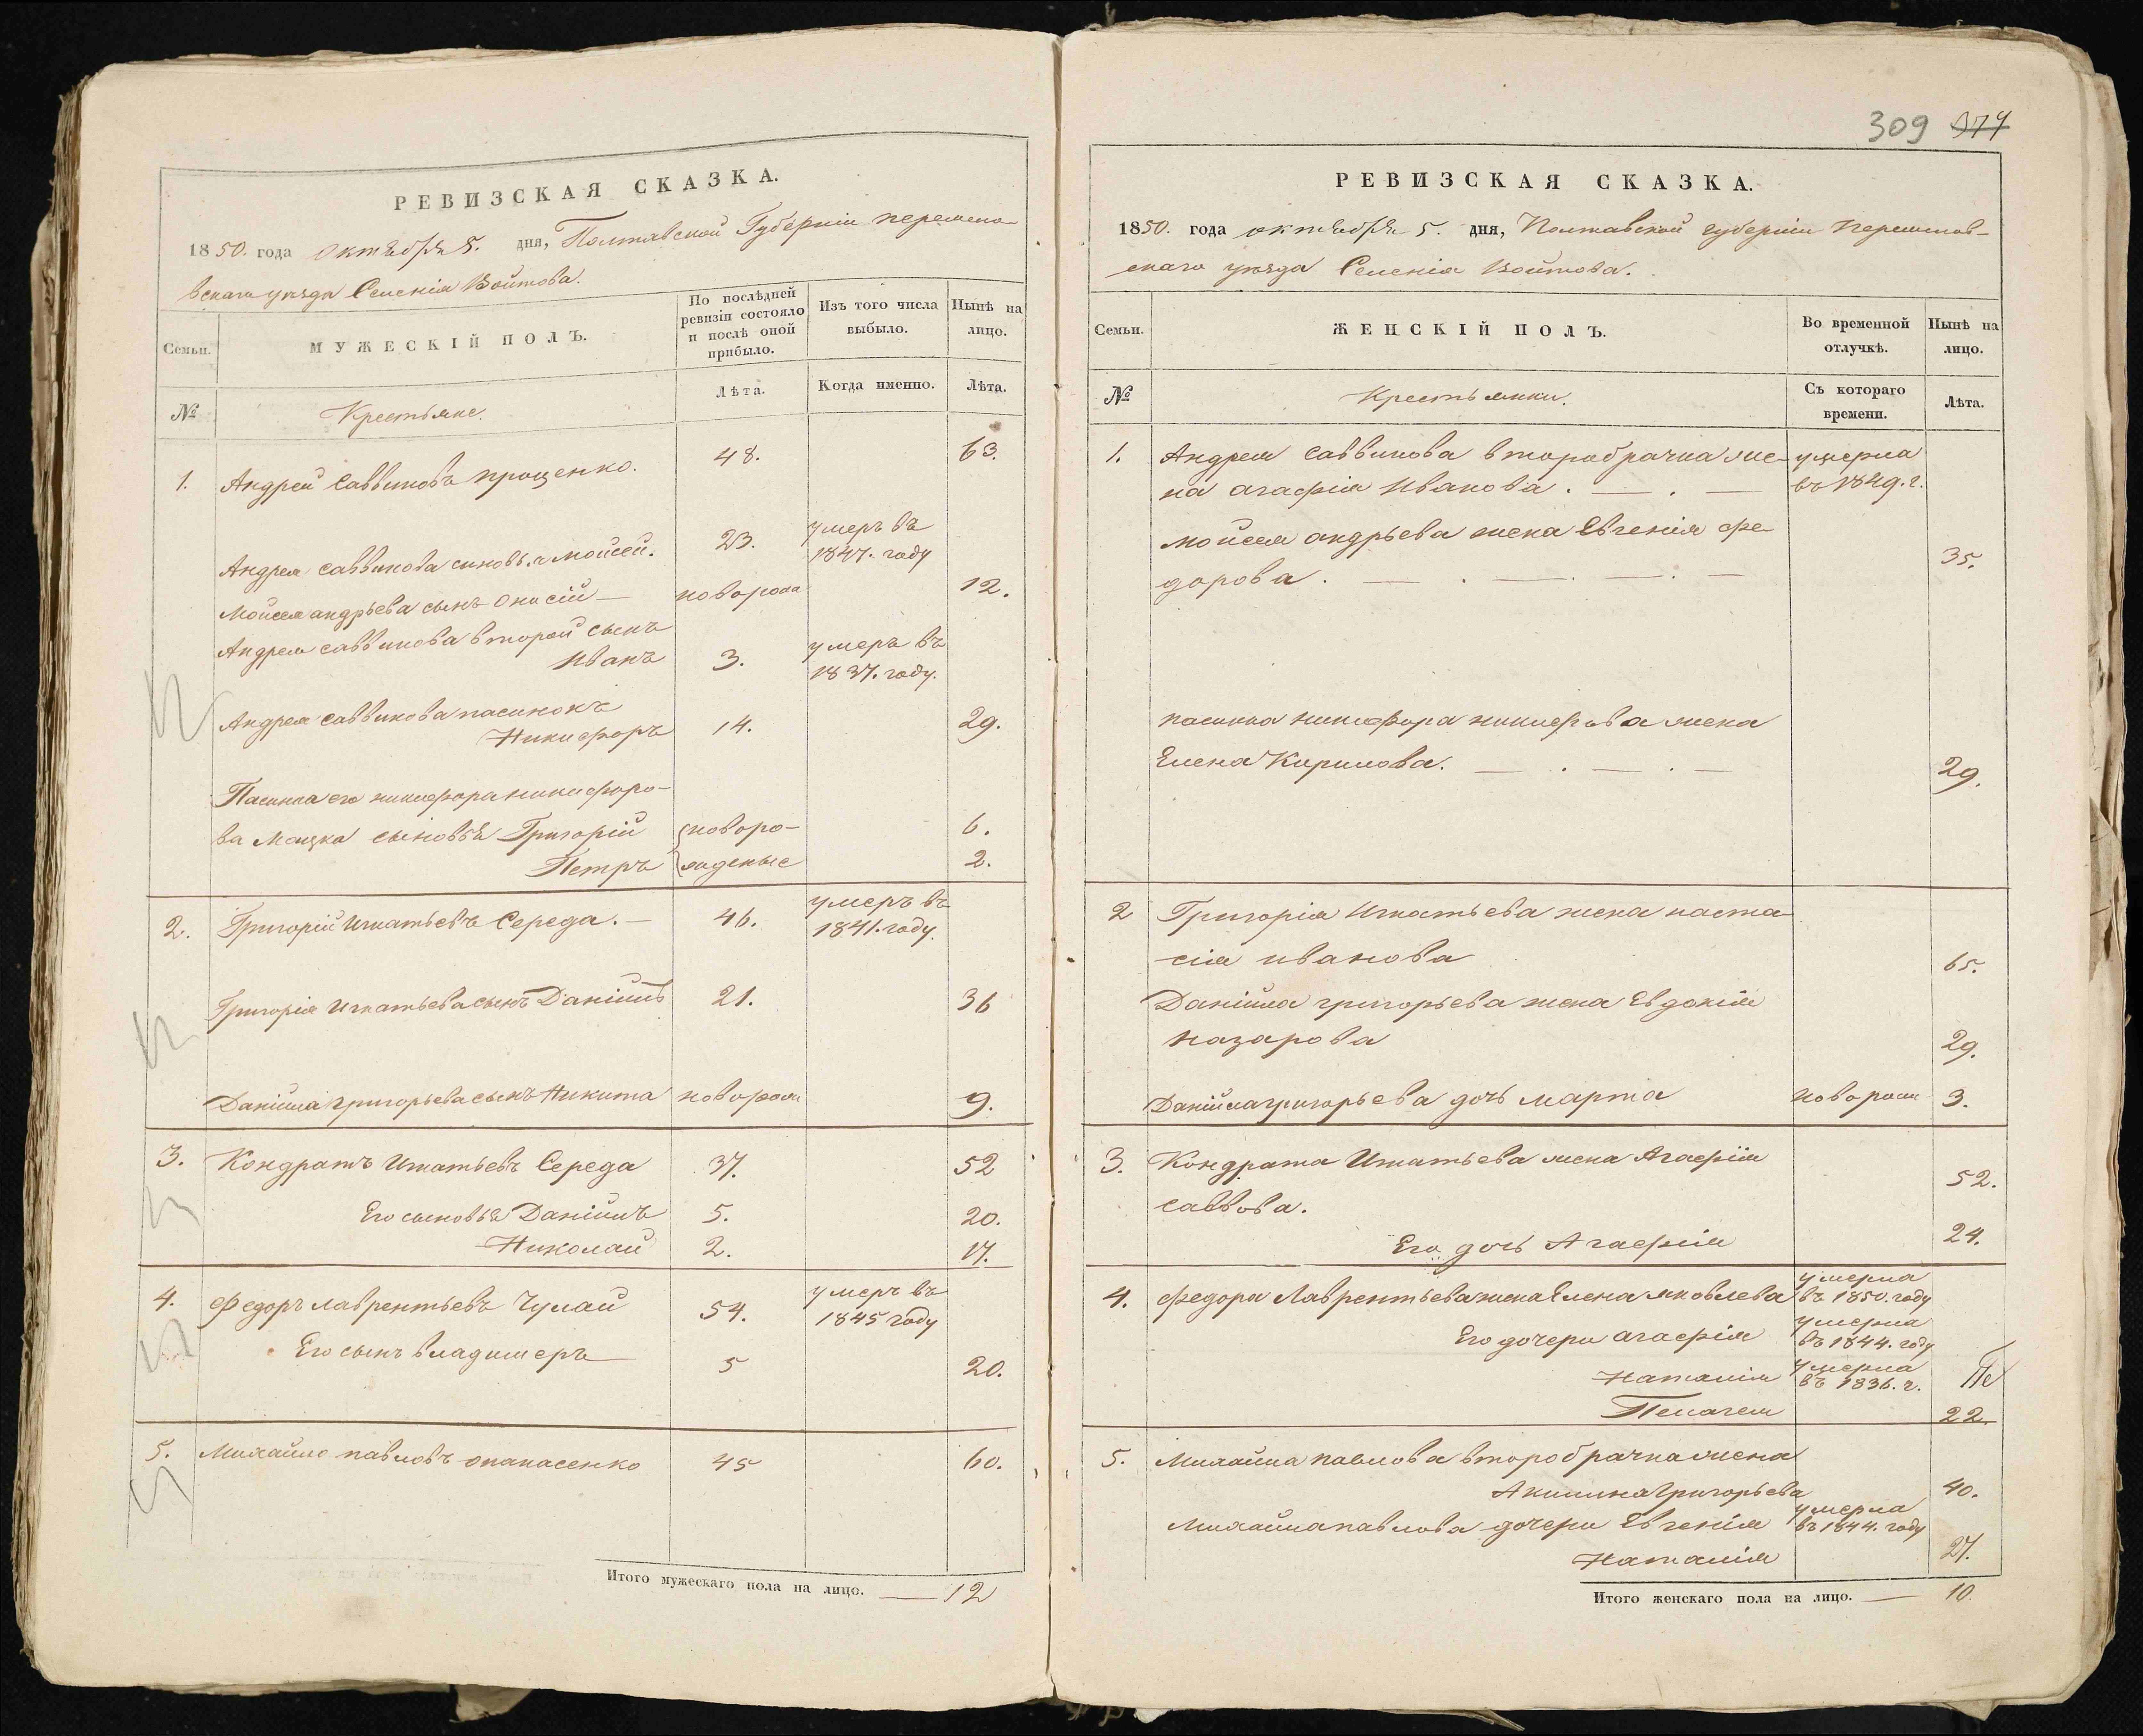 РЕВИЗСКАЯ СКАЗКА.
1850. года октября 5. дня, Полтавской Губерніи Переяслов-
вскаго уѣзда Селенія Войтова.
Семьи.
МУЖЕСКІЙ ПОЛЪ.
По послѣдней ревизіи состояло и послѣ оной прибыло.
Изъ того числа выбыло.
Нынѣ на лицо.
№
Крестьяне.
Лѣта.
Когда именно.
Лѣта.
1. Андрей Саввиновъ Проценко. 48. 63.
Андрея Саввинова сыновья Мойсей. 23. умеръ въ 1847. году
Мойсея андрѣева сынъ Онисій — новорож 12.
Андрея саввинова второй сынъ
Иванъ 3. умеръ въ 1837. году.
Андрея саввинова пасинокъ
Никифоръ 14. 29.
Пасинка его никифора никифоро-
ва сыновья Григорій новоро- 6.
Петръ жденые 2.
2. Григорій Игнатьевъ Середа. — 46. умеръ въ 1841. году.
Григорія Игнатьева сынъ Даніилъ 21. 36
Даніила григорьева сынъ Никита новорож 9.
3. Кондратъ Игнатьевъ Середа 37. 52
Его сыновья Даніилъ 5. 20.
Николай 2. 17.
4. Федоръ лаврентьевъ Чулай 54. умеръ въ 1845 году
Его сынъ владимеръ 5 20.
5. Михайло павловъ опанасенко 45 60.
Итого мужескаго пола на лицо. — 12
309 374
РЕВИЗСКАЯ СКАЗКА.
1850. года октября 5. дня, Полтавской губерніи Переяслов-
скаго уѣзда Селенія Войтова.
Семьи.
ЖЕНСКІЙ ПОЛЪ.
Во временной отлучкѣ.
Нынѣ на лицо.
№
Крестьянки.
Съ котораго времени.
Лѣта.
1. Андрея саввинова второбрачна же- умерла
на агафія Иванова. — . — въ 1849. г.
Мойсея андрѣева жена Евгенія фе-
дорова. — . — . — . — 35.
пасинка никифора никифорова жена
Елена Кирилова. — . — . — 29.
2 Григорія Игнатьева жена наста-
сія иванова 65.
Даніила григорьева жена Евдокія
назарова 29.
Даніила григорьева дочь марта новорож 3.
3. Кондрата Игнатьева жена Агафія
саввова. 52.
Его дочь Агафія 24.
4. федора Лаврентьева жена Елена яковлева умерла въ 1850. году
Его дочери агафія умерла въ 1844. году
Наталія умерла въ 1836. г.
Пелагея 22.
5. Михайла павлова второбрачна жена
Акилина Григорьева 40.
Михайла павлова дочери Евгенія умерла въ 1844. году
Наталія 27.
Итого женскаго пола на лицо. — 10.